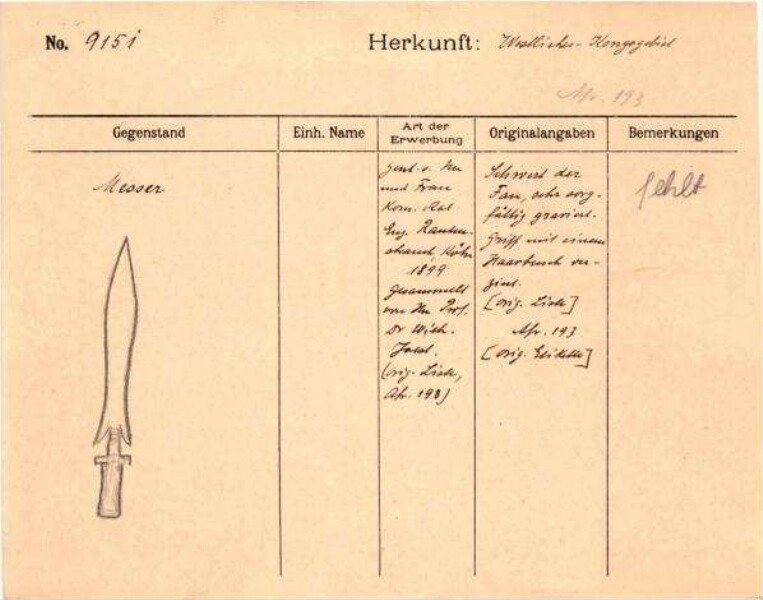 No. 9151
Herkunft: Westliches Kongogebiet
Afr. 193
Gegenstand
Einh. Name
Art der
Erwerbung
Originalangaben
Bemerkungen
Messer
Gesch. v. Hrn
und Frau
Kom. Rat
Eug. Rauten-
strauch, Köln
1899
Gesammelt
von Hrn Prof.
Dr Wilh.
Joest.
(orig. Liste,
Afr. 193)
Schwert der
Fan, sehr sorg-
fältig graviert.
Griff mit einem
Haarbusch ver-
ziert.
[orig. Liste]
Afr. 193
[orig. Etikette]
fehlt